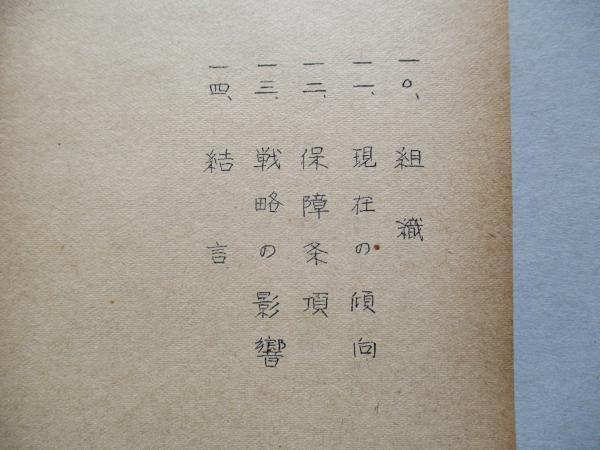 一〇、組織
一一、現在の傾向
一二、保障条項
一三、戦略の影響
一四、結言